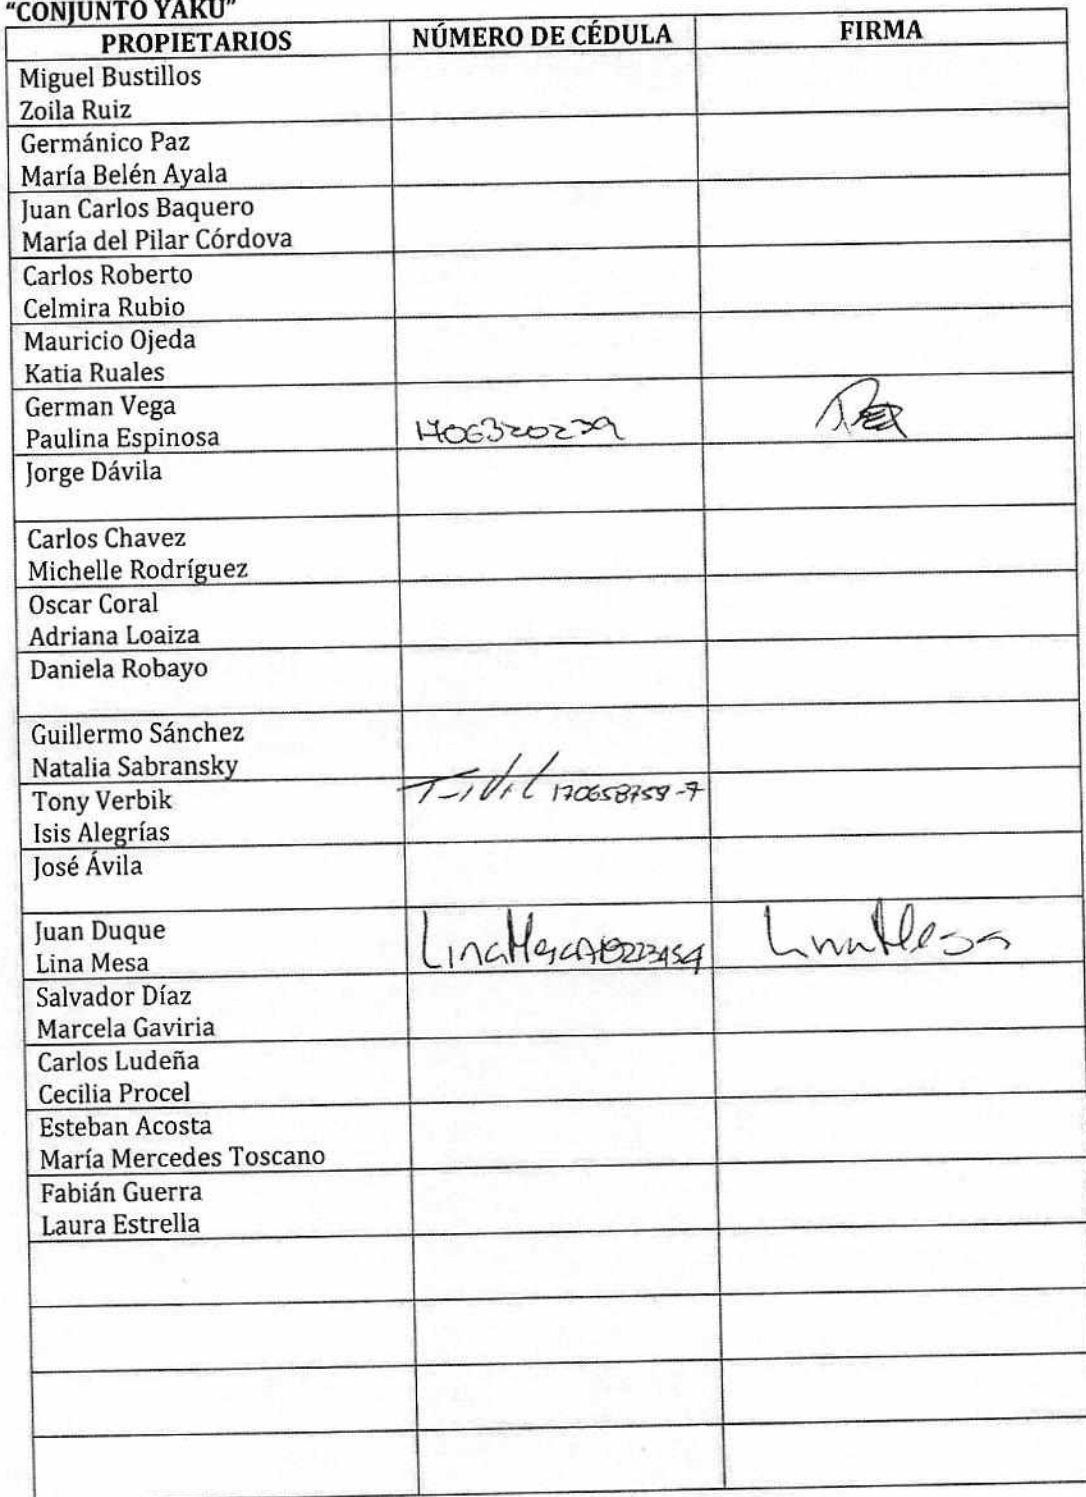 "CONJUNTO YAKU"
PROPIETARIOS NÚMERO DE CÉDULA FIRMA
Miguel Bustillos
Zoila Ruiz
Germánico Paz
María Belén Ayala
Juan Carlos Baquero
María del Pilar Córdova
Carlos Roberto
Celmira Rubio
Mauricio Ojeda
Katia Ruales
German Vega
Paulina Espinosa 1706320239
Jorge Dávila
Carlos Chavez
Michelle Rodríguez
Oscar Coral
Adriana Loaiza
Daniela Robayo
Guillermo Sánchez
Natalia Sabransky
Tony Verbik 170658759-7
Isis Alegrías
José Ávila
Juan Duque
Lina Mesa Lina Mesa Lina Mesa
Salvador Díaz
Marcela Gaviria
Carlos Ludeña
Cecilia Procel
Esteban Acosta
María Mercedes Toscano
Fabián Guerra
Laura Estrella